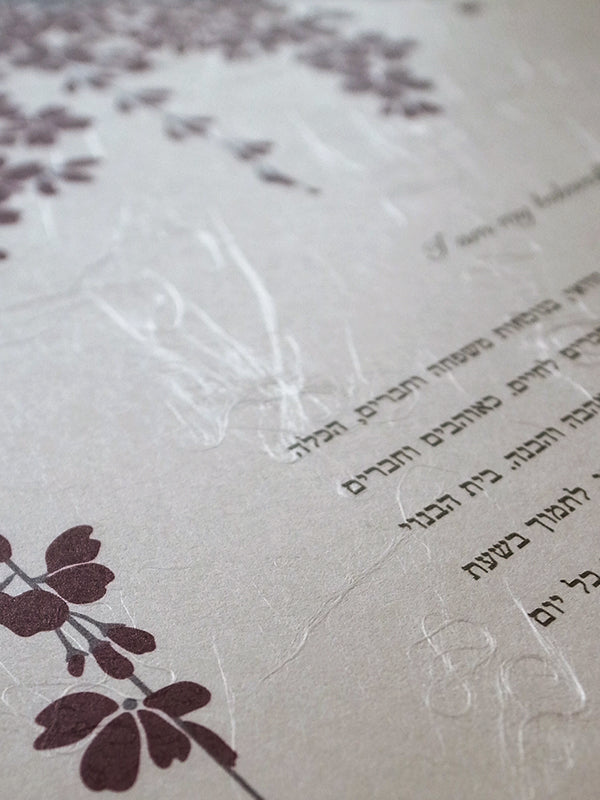 I am my beloved
בנוכחות משפחה וחברים, הכלה
לחיים. כאוהבים וחברים
והבנה. בית הבנוי
לתמוך בשעת
כל יום